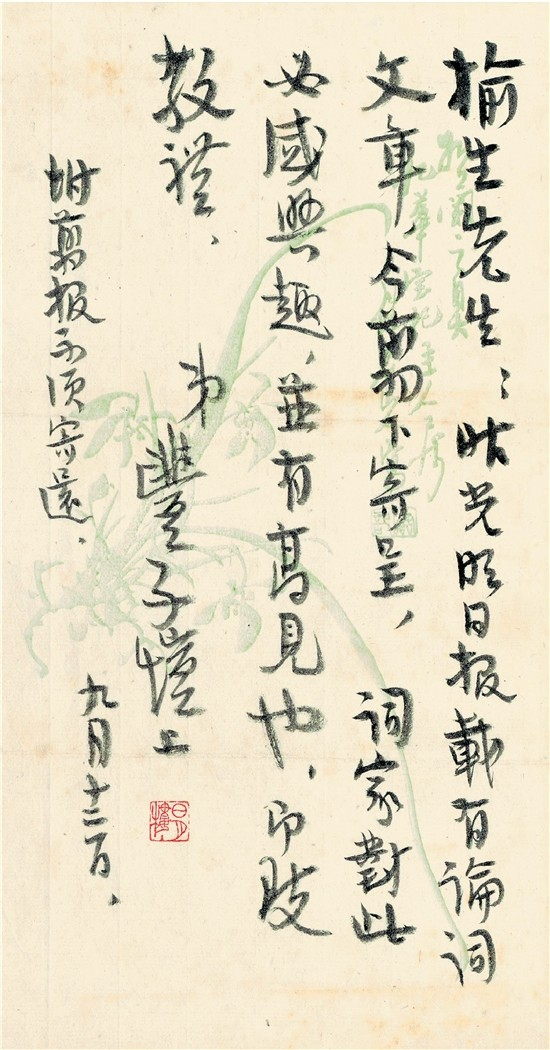 榆生先生：昨光明日报載有論詞
文章，今剪下寄呈，詞家對此
必感興趣，並有高見也，即頌
教禮，
弟豐子愷上
附剪报不须寄還，九月十二日，
日月樓